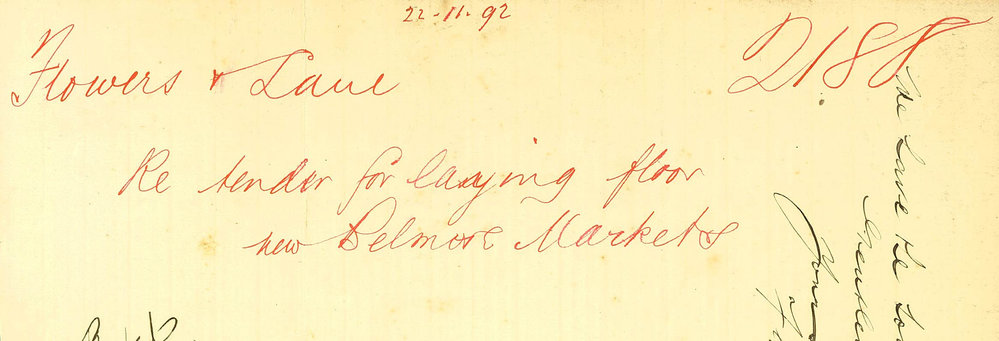 22-11-92
Flowers & Lane
2188
Re tender for laying floor
new Belmore Markets